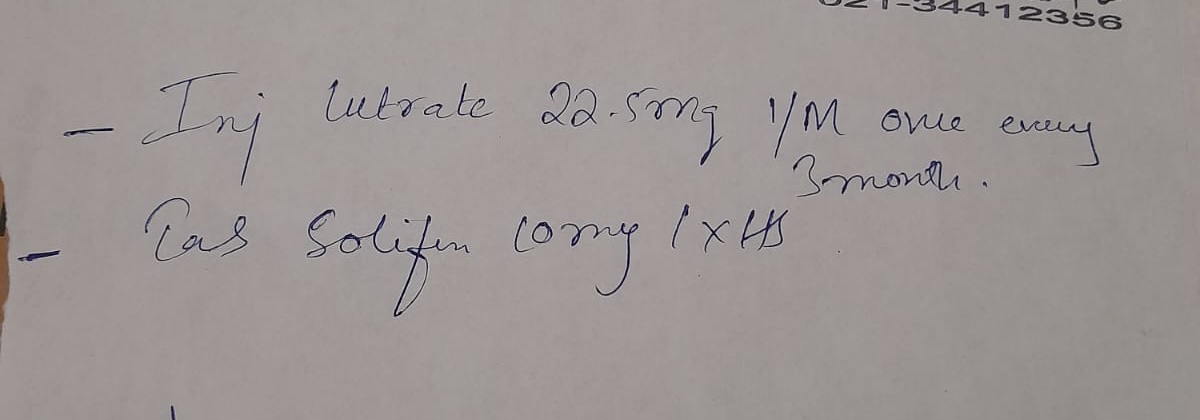 021-34412356
- Inj lutrate 22.5mg I/M once every
3 month.
- Tab Solifen 10mg 1 x HS